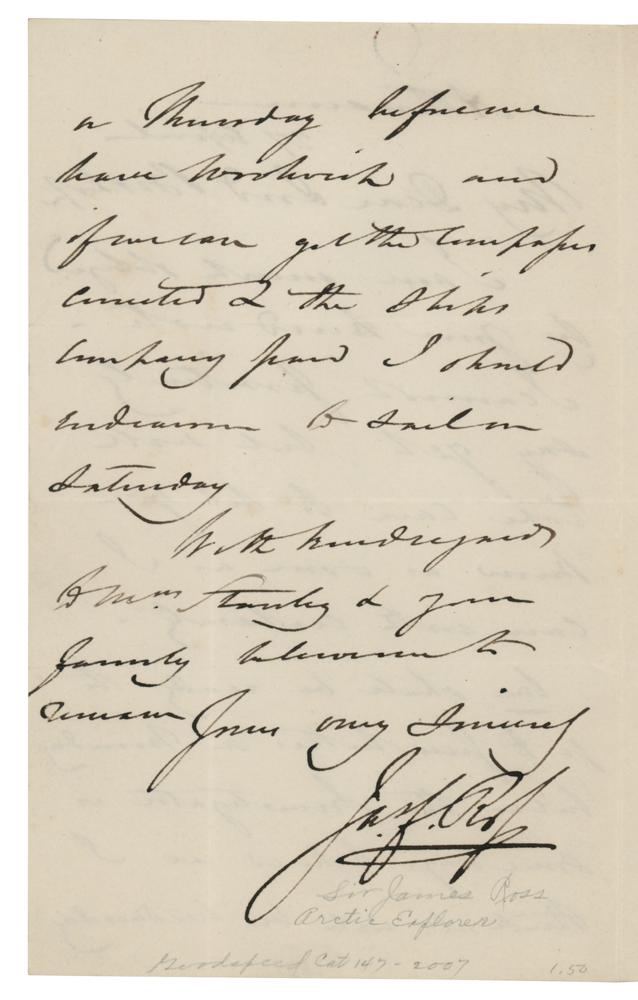 or Thursday before we
leave Woolwich and
if we can get the Compasses
corrected & the Ships
Company paid I should
endeavour to sail on
Saturday
With kind regards
to Mrs Stanley & your
family believe me to
remain Yours very Sincerely
Jas. C. Ross
Sir James Ross
Arctic Explorer
Goodspeed Cat 147 - 2007
1.50